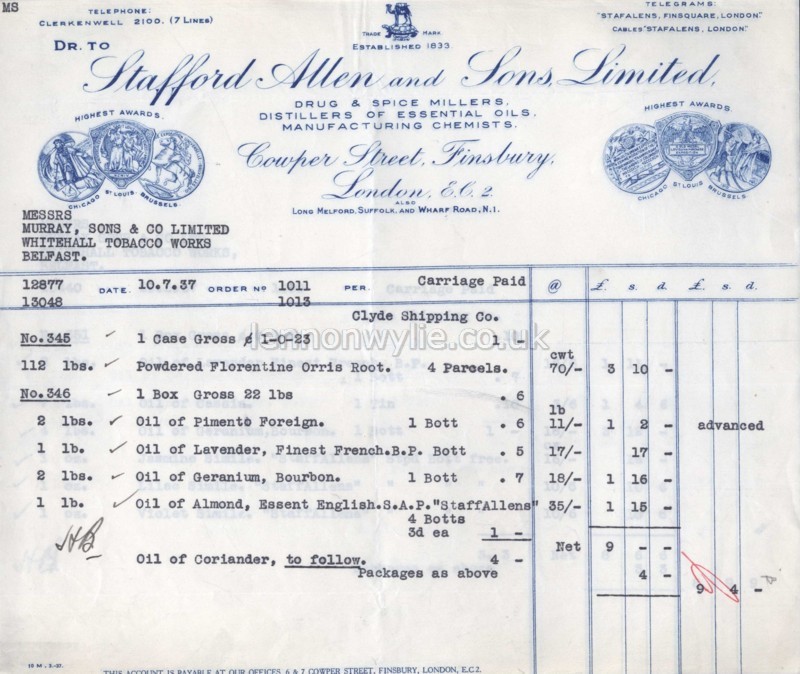 MS
TELEPHONE:
CLERKENWELL 2100. (7 LINES)
TRADE MARK
ESTABLISHED 1833
TELEGRAMS:
"STAFALENS, FINSQUARE, LONDON."
CABLES "STAFALENS, LONDON."
DR. TO
Stafford Allen and Sons, Limited,
DRUG & SPICE MILLERS,
DISTILLERS OF ESSENTIAL OILS,
MANUFACTURING CHEMISTS.
HIGHEST AWARDS.
CHICAGO ST LOUIS. BRUSSELS.
HIGHEST AWARDS.
CHICAGO ST LOUIS. BRUSSELS.
Cowper Street, Finsbury,
London, E.C. 2.
ALSO
LONG MELFORD, SUFFOLK, AND WHARF ROAD, N.I.
MESSRS
MURRAY, SONS & CO LIMITED
WHITEHALL TOBACCO WORKS
BELFAST.
12877 DATE. 10.7.37 ORDER No 1011 PER. Carriage Paid @ £. s. d. £. s. d.
13048 1013
Clyde Shipping Co.
lennonwylie.co.uk
No.345 1 Case Gross ¢ 1-0-23 1 -
cwt
112 lbs. Powdered Florentine Orris Root. 4 Parcels. 70/- 3 10 -
No.346 1 Box Gross 22 lbs . 6
lb
2 lbs. Oil of Pimento Foreign. 1 Bott . 6 11/- 1 2 - advanced
1 lb. Oil of Lavender, Finest French.B.P. Bott . 5 17/- 17 -
2 lbs. Oil of Geranium, Bourbon. 1 Bott . 7 18/- 1 16 -
1 lb. Oil of Almond, Essent English.S.A.P."StaffAllens" 35/- 1 15 -
4 Botts
3d ea 1 -
HB
Net 9 - -
Oil of Coriander, to follow. 4 -
Packages as above 4 -
9 4 -
15 M, 3-37.
THIS ACCOUNT IS PAYABLE AT OUR OFFICES, 6 & 7 COWPER STREET, FINSBURY, LONDON, E.C.2.